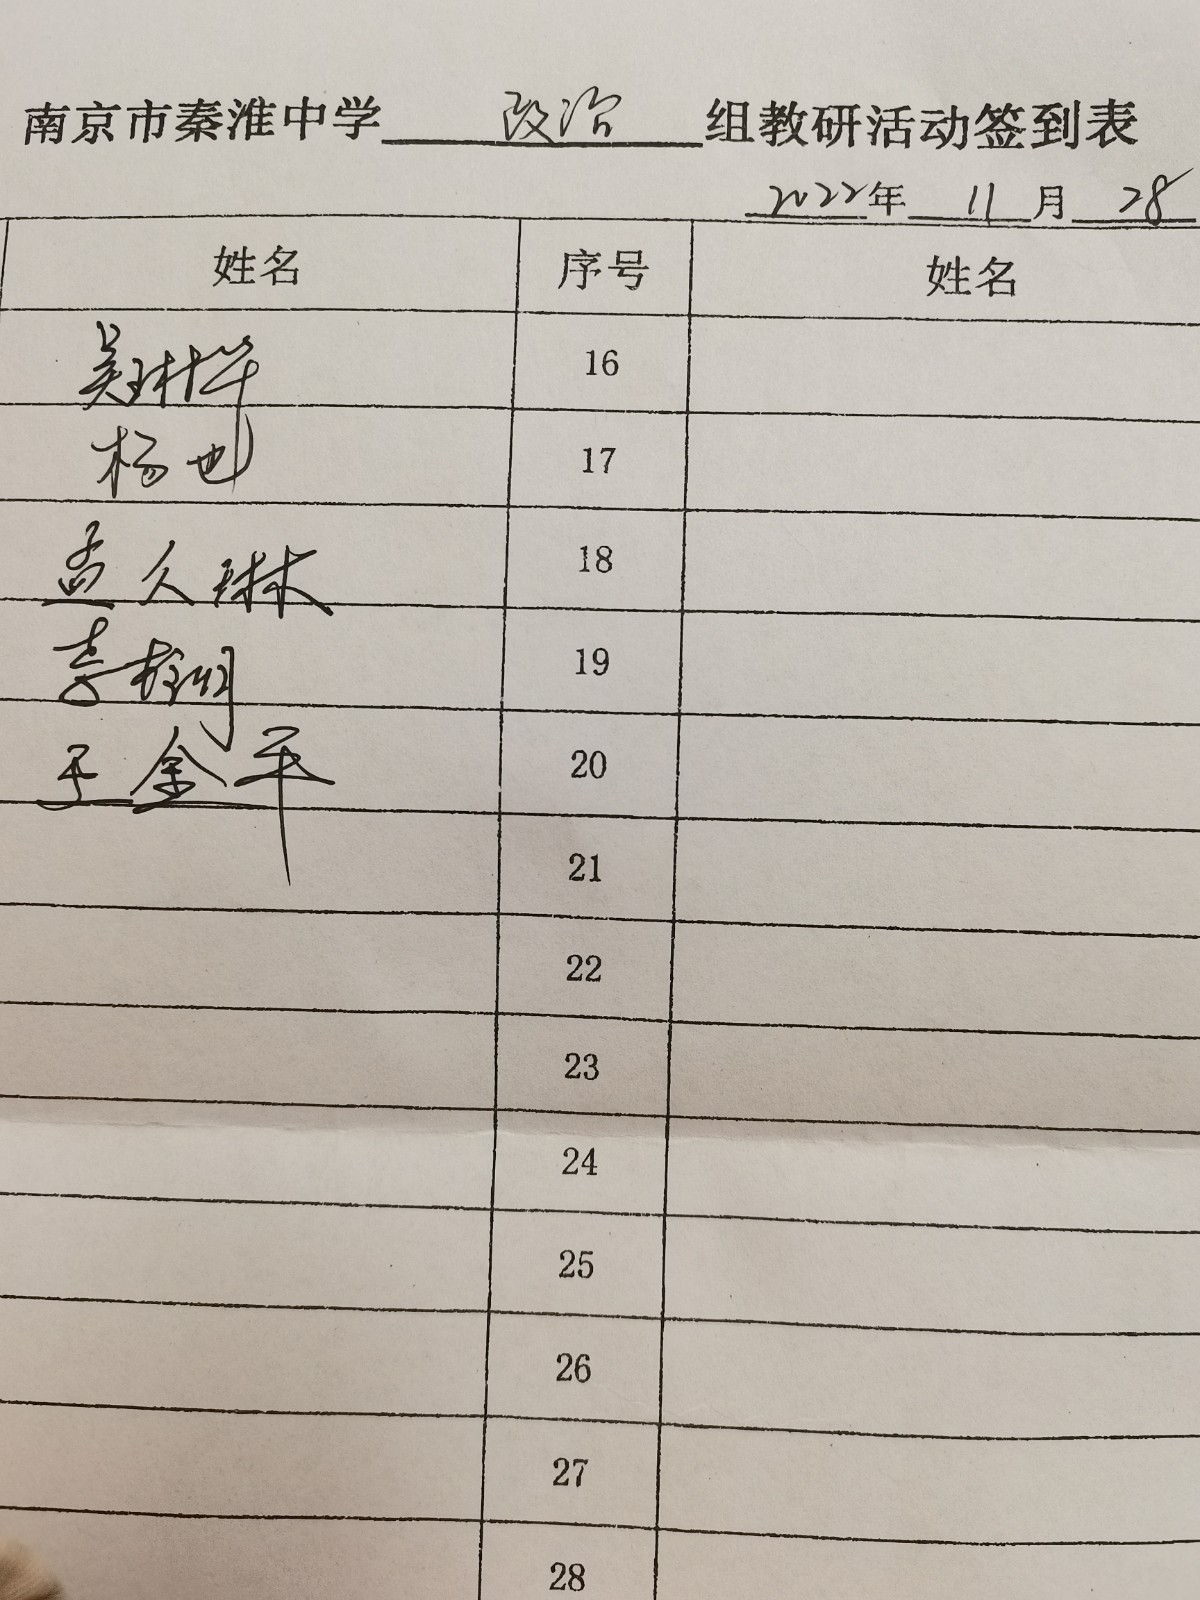 南京市秦淮中学 政治 组教研活动签到表
2022年 11月 28
姓名 序号 姓名
吴琳桦 16
杨也 17
孟久琳 18
李 19
于金平 20
21
22
23
24
25
26
27
28